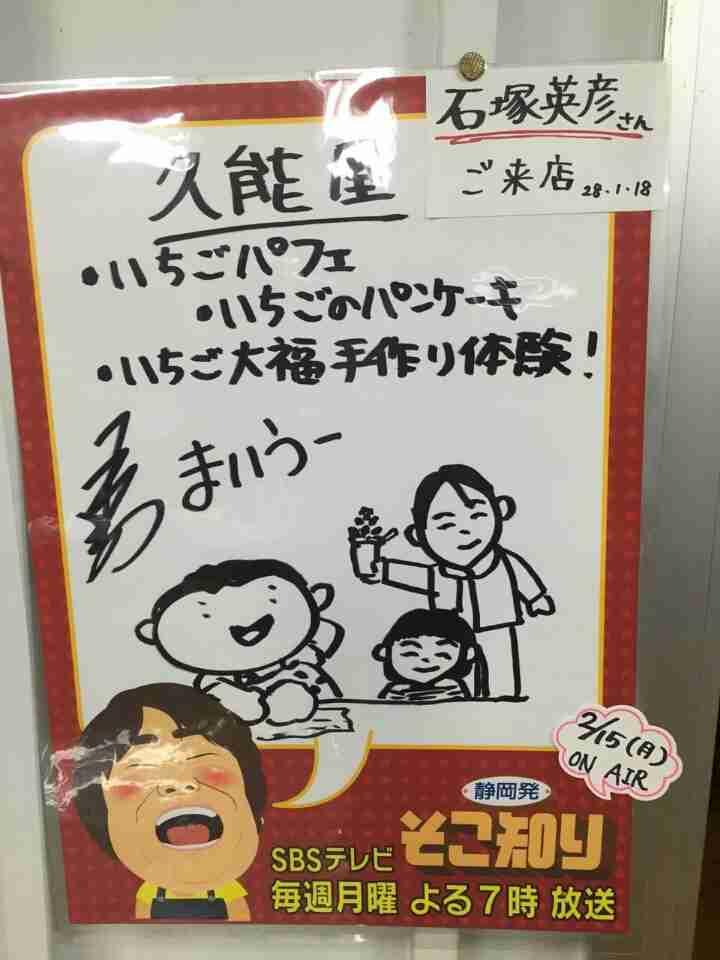 石塚英彦さん
ご来店 28.1.18
久能屋
・いちごパフェ
・いちごのパンケーキ
・いちご大福手作り体験!
まいうー
2/15(月)
ON AIR
静岡発
そこ知り
SBSテレビ
毎週月曜 よる7時 放送